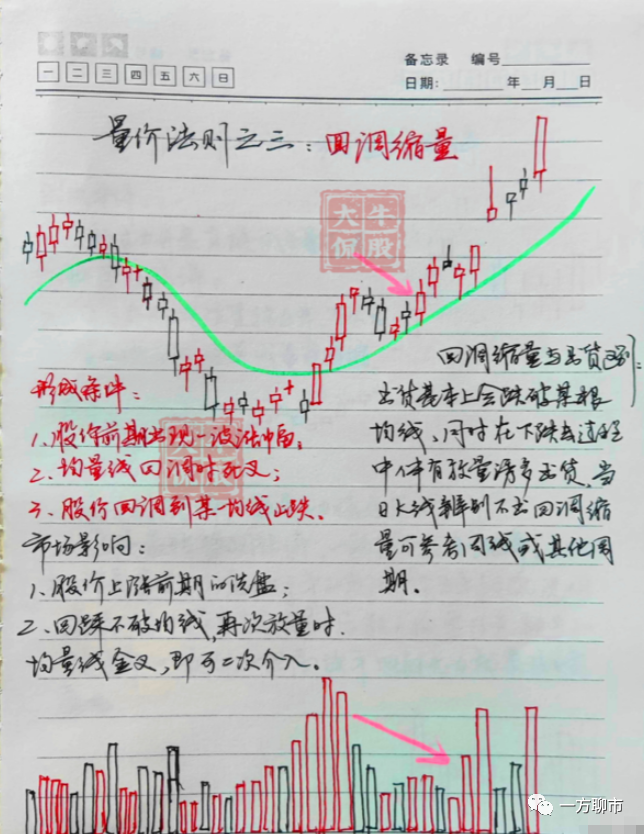 备忘录 编号
一 二 三 四 五 六 日
日期: 年 月 日
量价法则之三：回调缩量
大牛
侃股
回调缩量与出货区别：
形成条件：
出货基本上会跌破某根
1、股价前期出现一波涨幅；
均线，同时在下跌过程
2、均量线回调时死叉；
中伴有放量诱多出货，当
3、股价回调到某一均线止跌。
日K线辨别不出回调缩
市场影响：
量可参考周线或其他周
1、股价上涨前期的洗盘；
期。
2、回踩不破均线，再次放量时，
均量线金叉，即可二次介入。
一方聊市